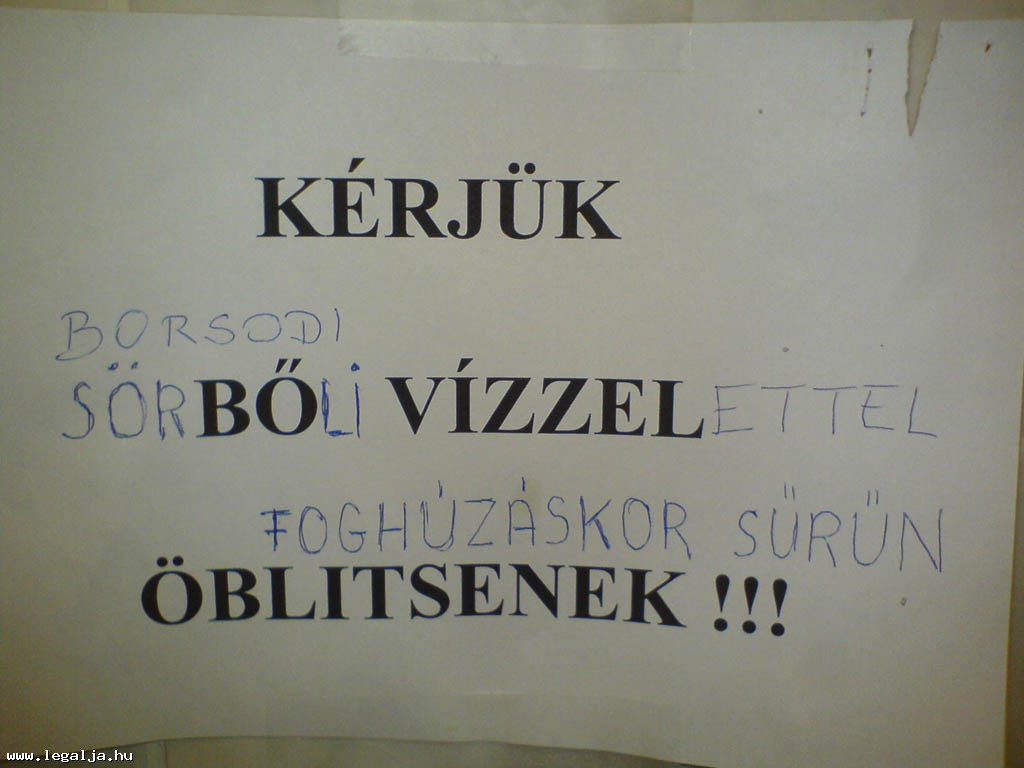 KÉRJÜK
BORSODI
SÖRBŐLI VÍZZELETTEL
FOGHÚZÁSKOR SŰRŰN
ÖBLITSENEK !!!
www.legalja.hu